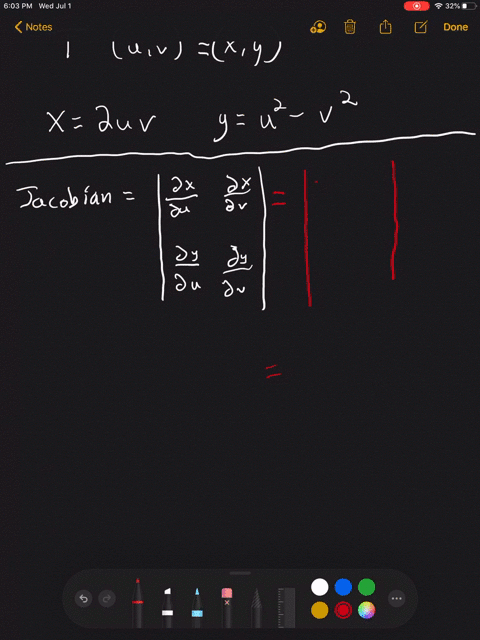 6:03 PM Wed Jul 1 32%
Notes Done
(u,v) = (x,y)
x = 2uv y = u² - v²
Jacobian = | ∂x/∂u ∂x/∂v | = | |
| ∂y/∂u ∂y/∂v |
=